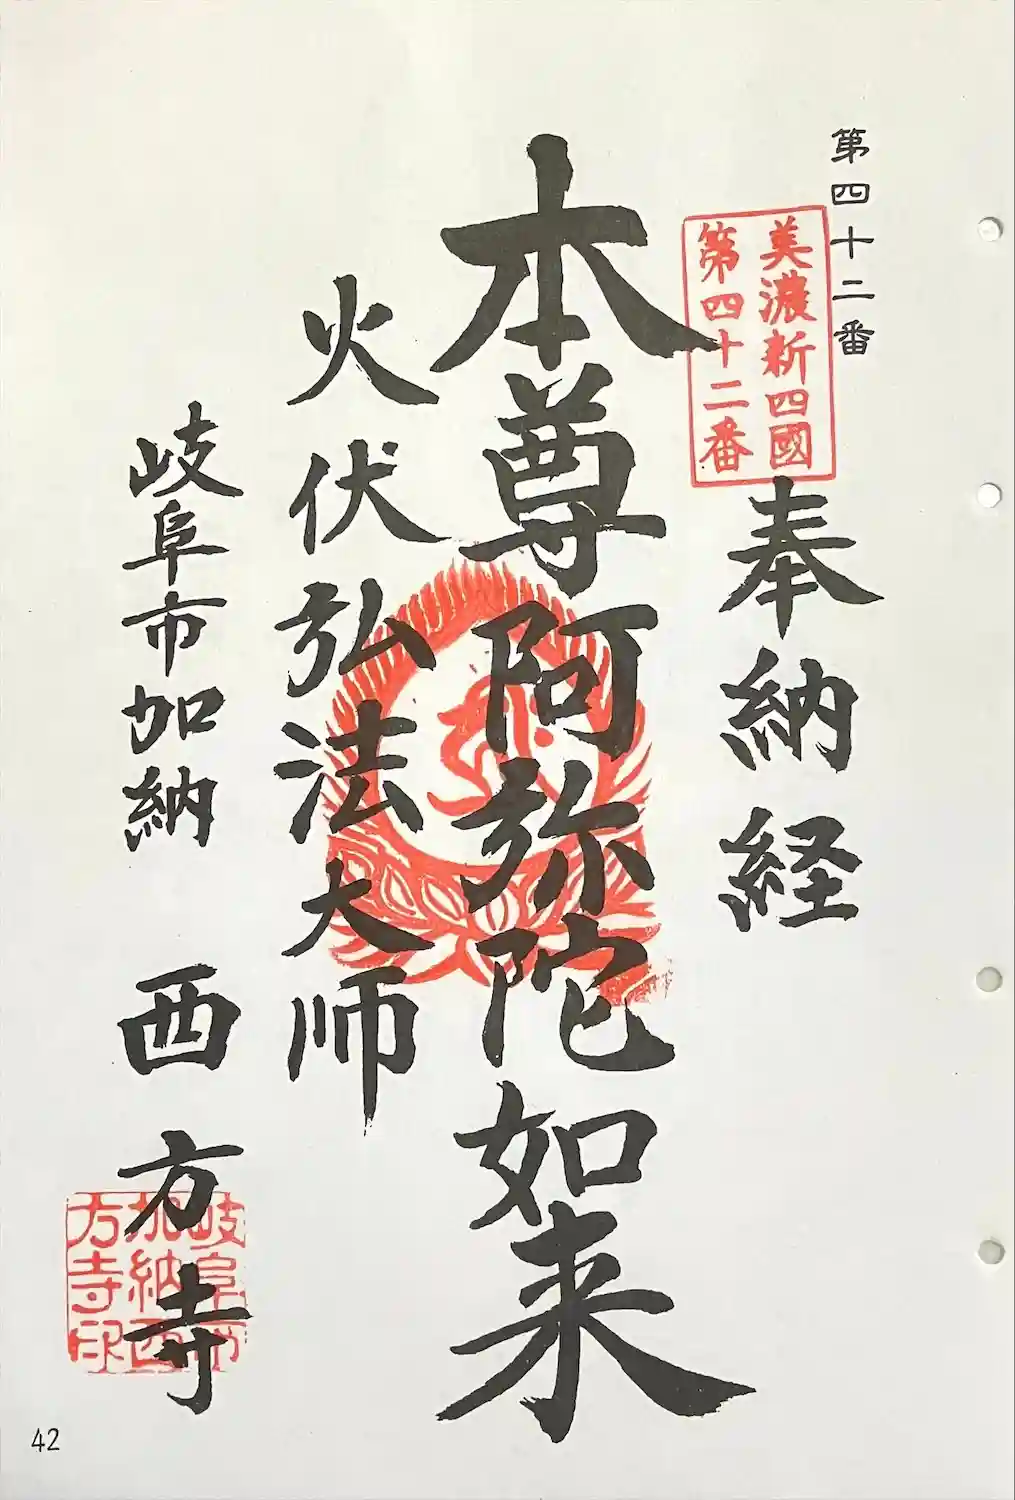 第四十二番
美濃新四國
第四十二番
奉納経
本尊阿弥陀如来
火伏弘法大师
岐阜市加納 西方寺
岐阜市
加納西
方寺印
42